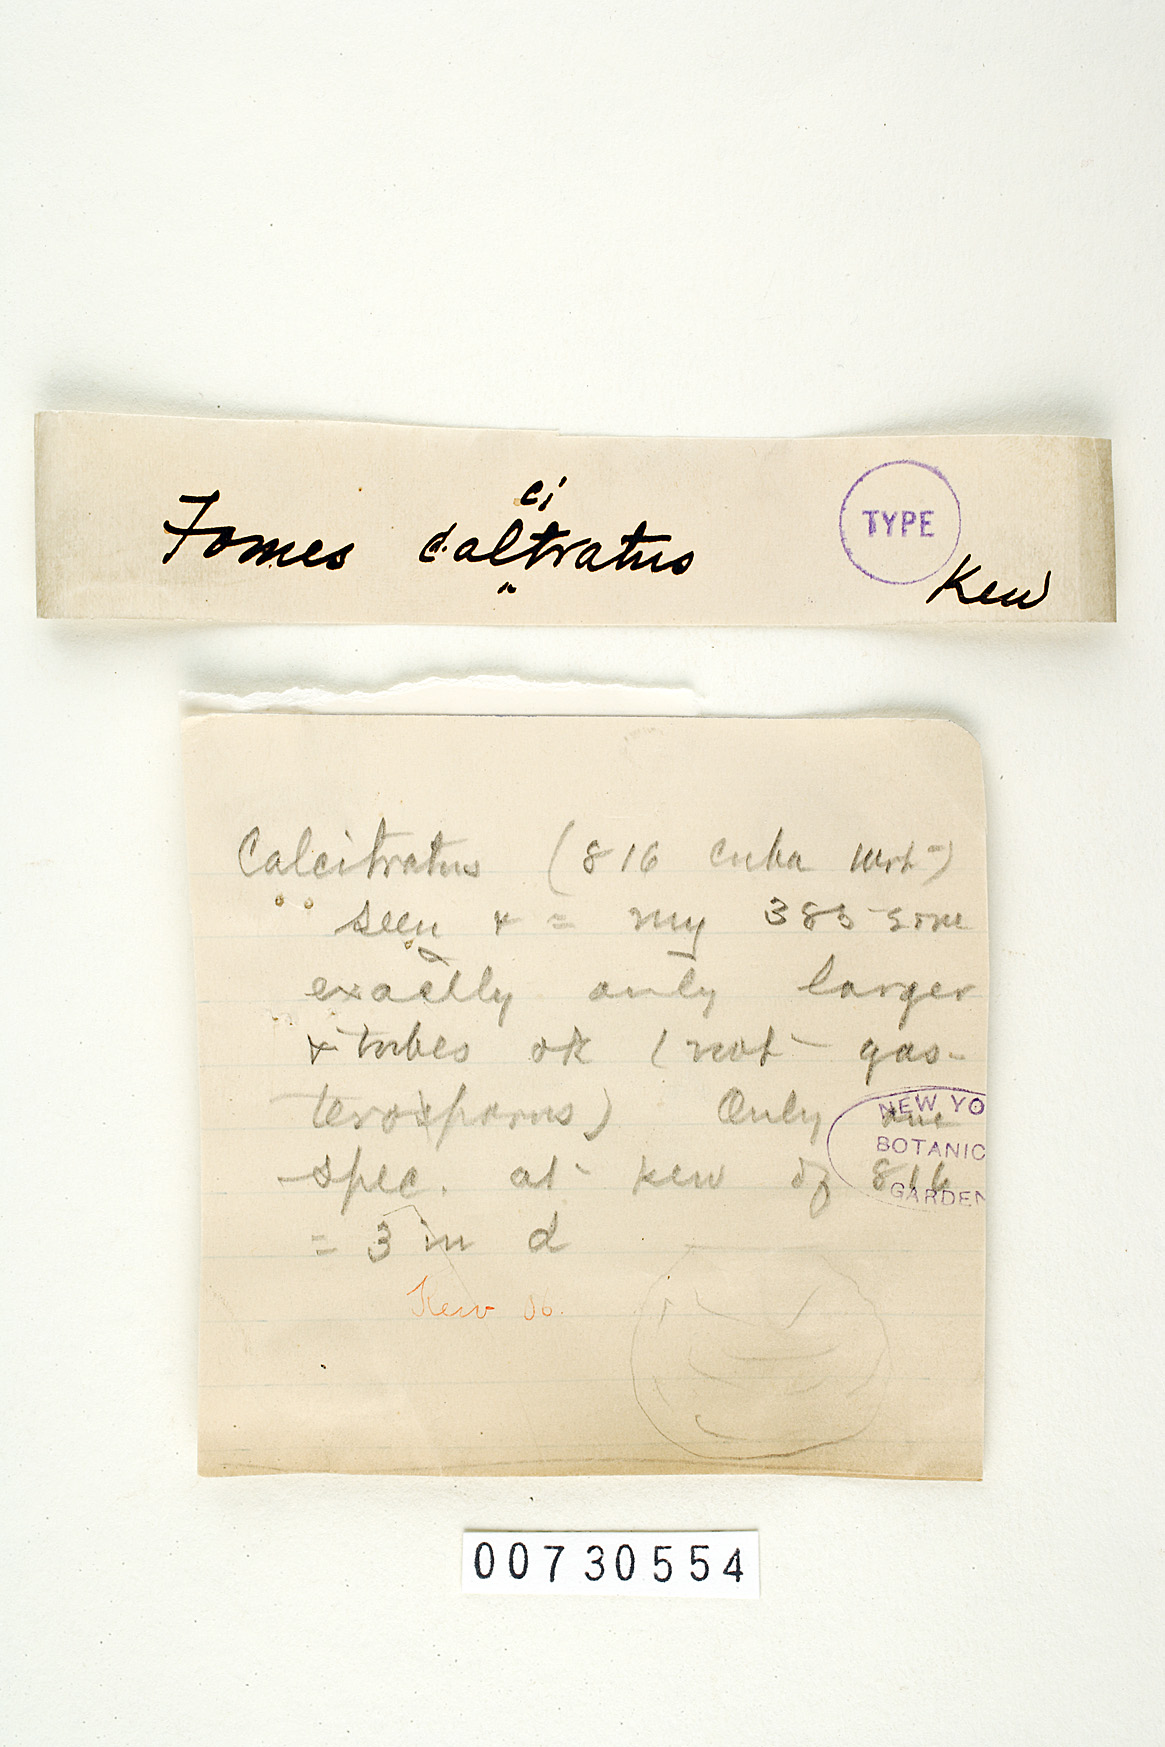 ci
Fomes caltratus
"
TYPE
Kew
Calcitratus (816 Cuba Wrt)
seen & = my 385
exactly only larger
& tubes ok (not gas-
terosporus) Only one
spec. at Kew of 816
= 3 in d
Kew 06.
NEW YO
BOTANIC
GARDEN
00730554